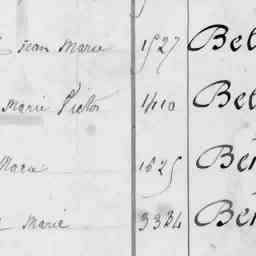 Jean Marie 1527 Bel
Marie Victor 1410 Bel
1625 Ber
Marie 3334 Ber